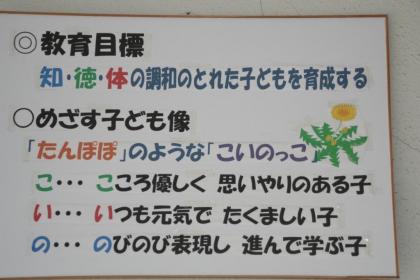 ◎教育目標
知・徳・体の調和のとれた子どもを育成する
○めざす子ども像
「たんぽぽ」のような「こいのっこ」
こ・・・ こころ優しく 思いやりのある子
い・・・ いつも元気で たくましい子
の・・・ のびのび表現し 進んで学ぶ子